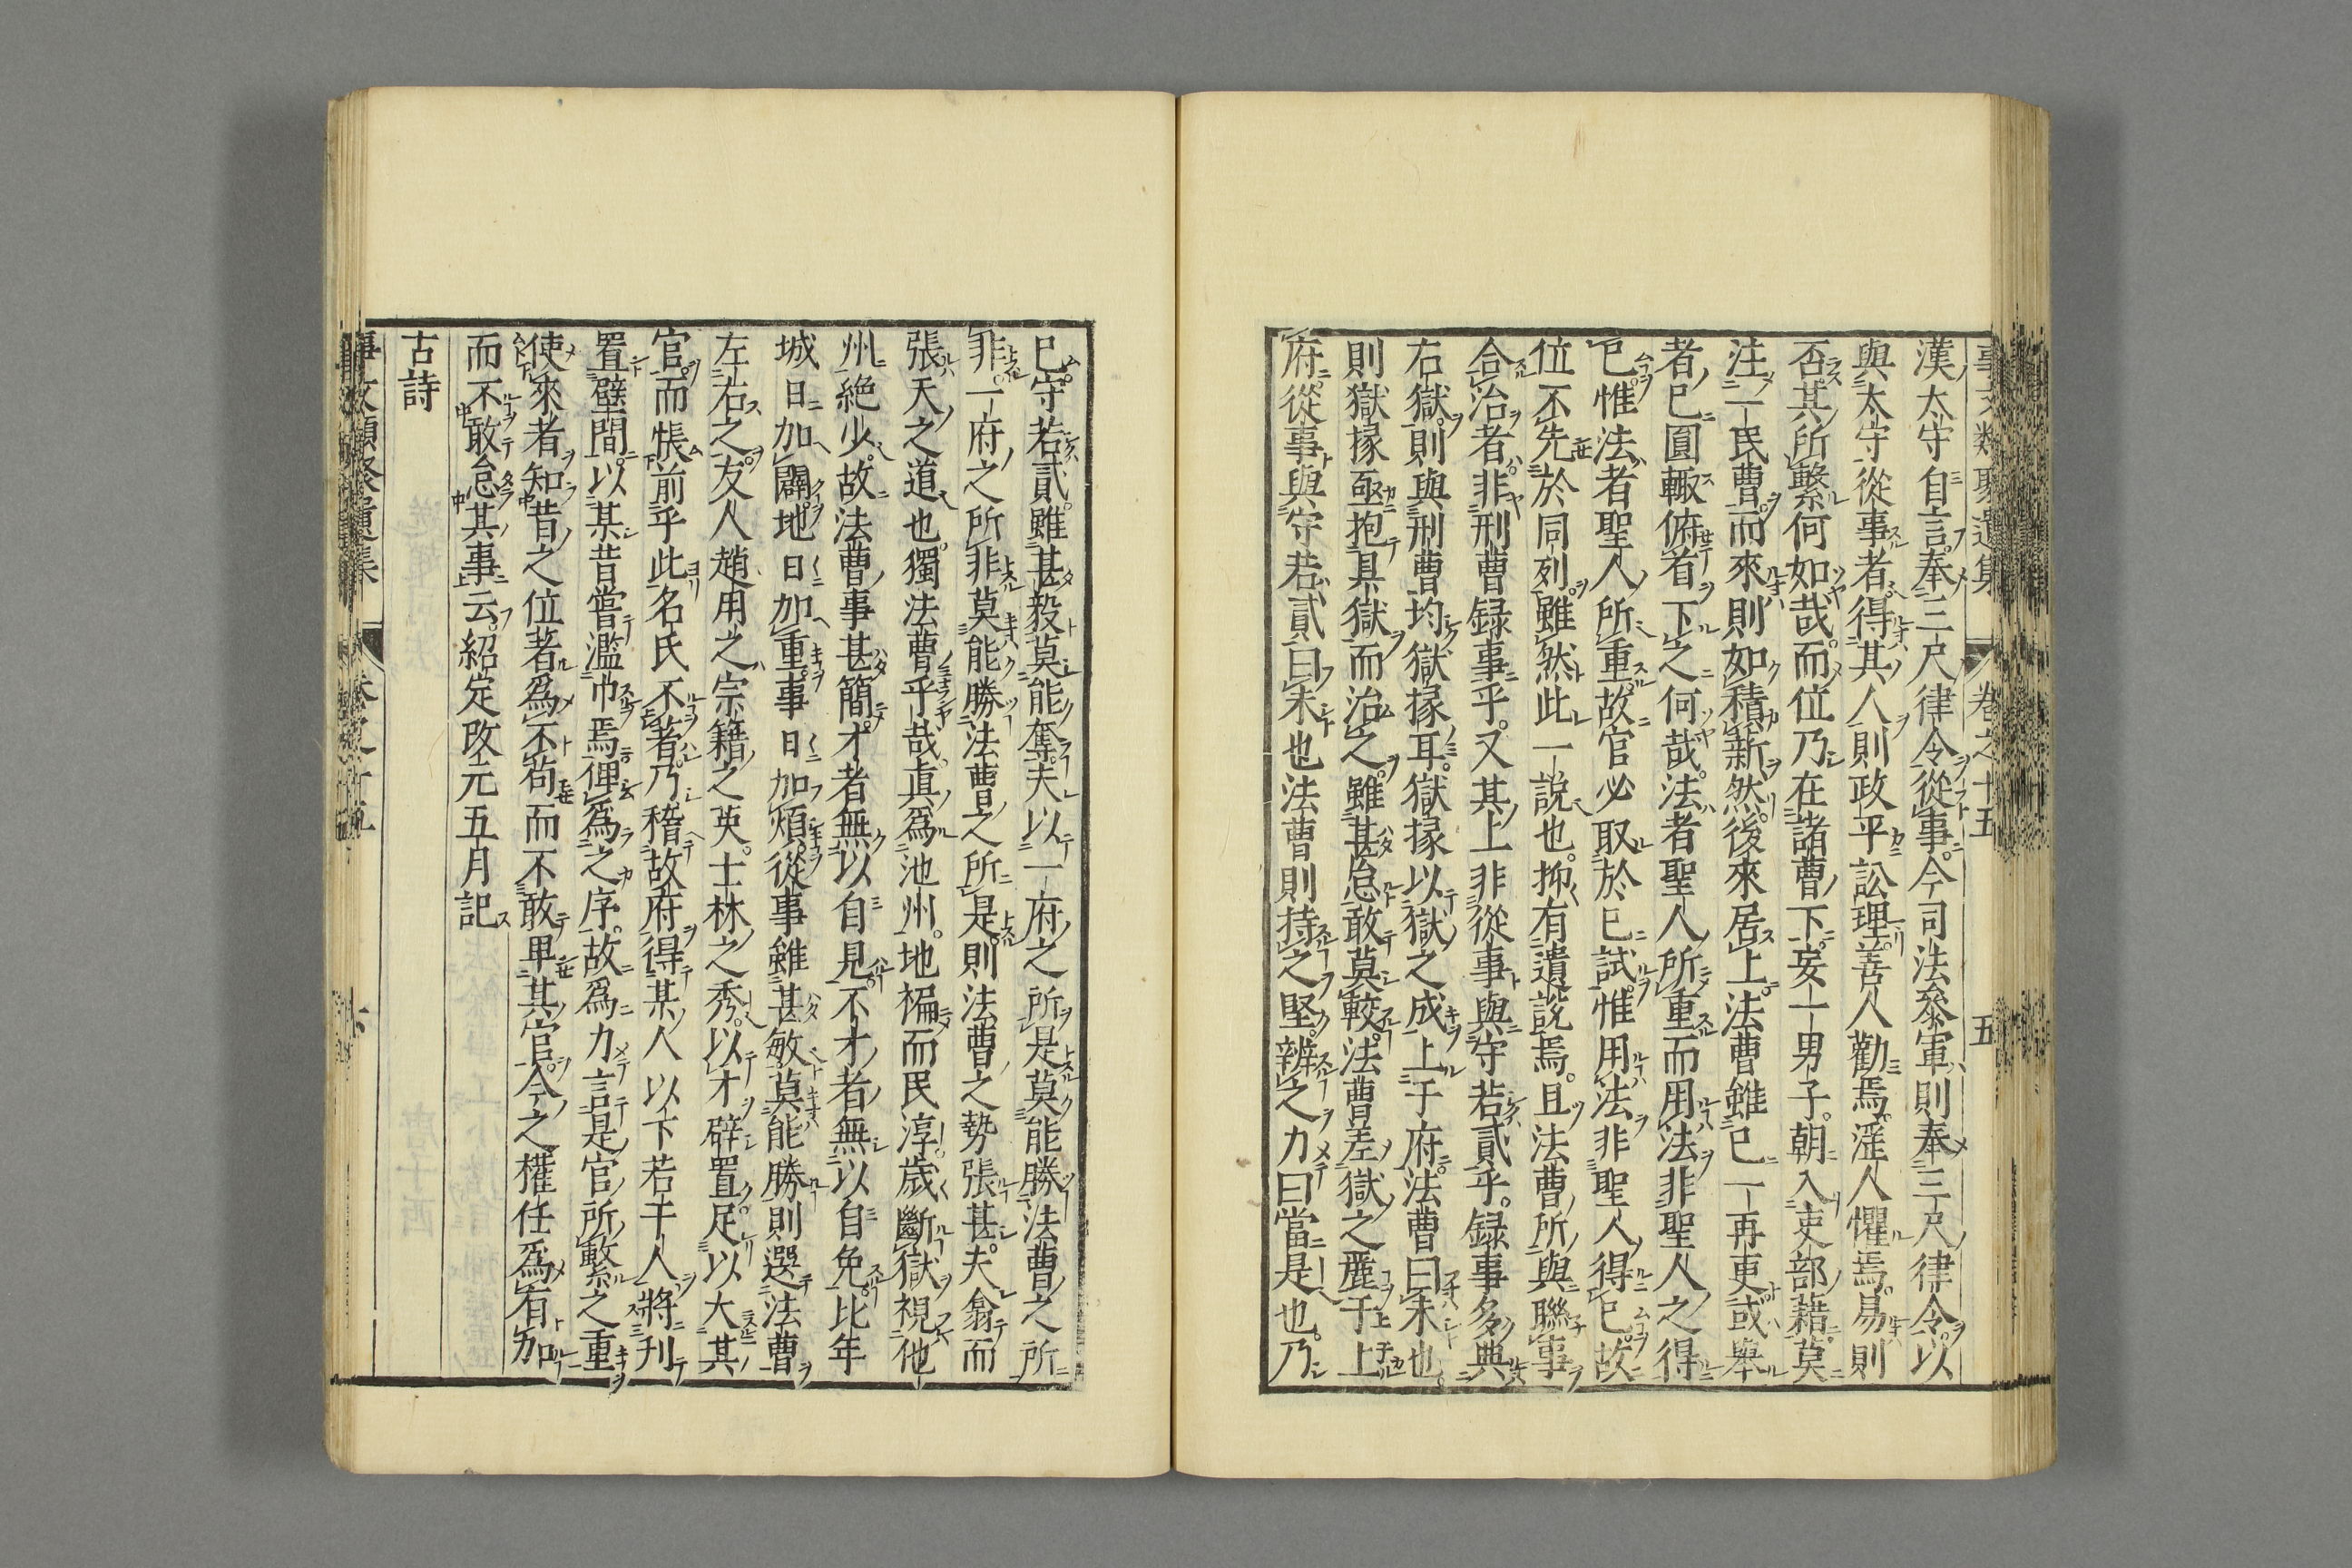 事文類聚遺集 卷之十五 五
漢太守自言奉三尺律令從事今司法叅軍則奉三尺律令以
與太守從事者得其人則政平訟理善人勸焉滛人懼焉易則
否其所繫何如哉而位乃在諸曹下妄一男子朝入吏部藉莫
注一民曹而來則如積薪然後來居上法曹雖已一再更或舉
者已圓輙俯首下之何哉法者聖人所重而用法非聖人之得
已惟法者聖人所重故官必取於已試惟用法非聖人得已故
位不先於同列雖然此一說也抑有遺說焉且法曹所與聯事
合治者非刑曹録事乎又其上非從事與守若貳乎録事多典
右獄則與刑曹均獄掾耳獄掾以獄之成上于府法曹曰未也
則獄掾亟抱具獄而治之雖甚怠敢莫較法曹差獄之麗于上
府從事與守若貳曰未也法曹則持之堅辨之力曰當是也乃
已守若貳雖甚毅莫能奪夫以一府之所是莫能勝法曹之所
非一府之所非莫能勝法曹之所是則法曹之勢張甚夫翕而
張天之道也獨法曹乎哉真為池州地褊而民淳歲斷獄視他
州絶少故法曹事甚簡才者無以自見不才者無以自免比年
城日加闢地日加重事日加煩從事雖甚敏莫能勝則選法曹
左右之友人趙用之宗籍之英士林之秀以才辟置足以大其
官而悵前乎此名氏不著乃稽故府得某人以下若干人將刋
置壁間以某昔嘗濫巾焉俾為之序故為力言是官所繫之重
使來者知昔之位著為不苟而不敢卑其官今之權任為有加
而不敢怠其事云紹定改元五月記
古詩